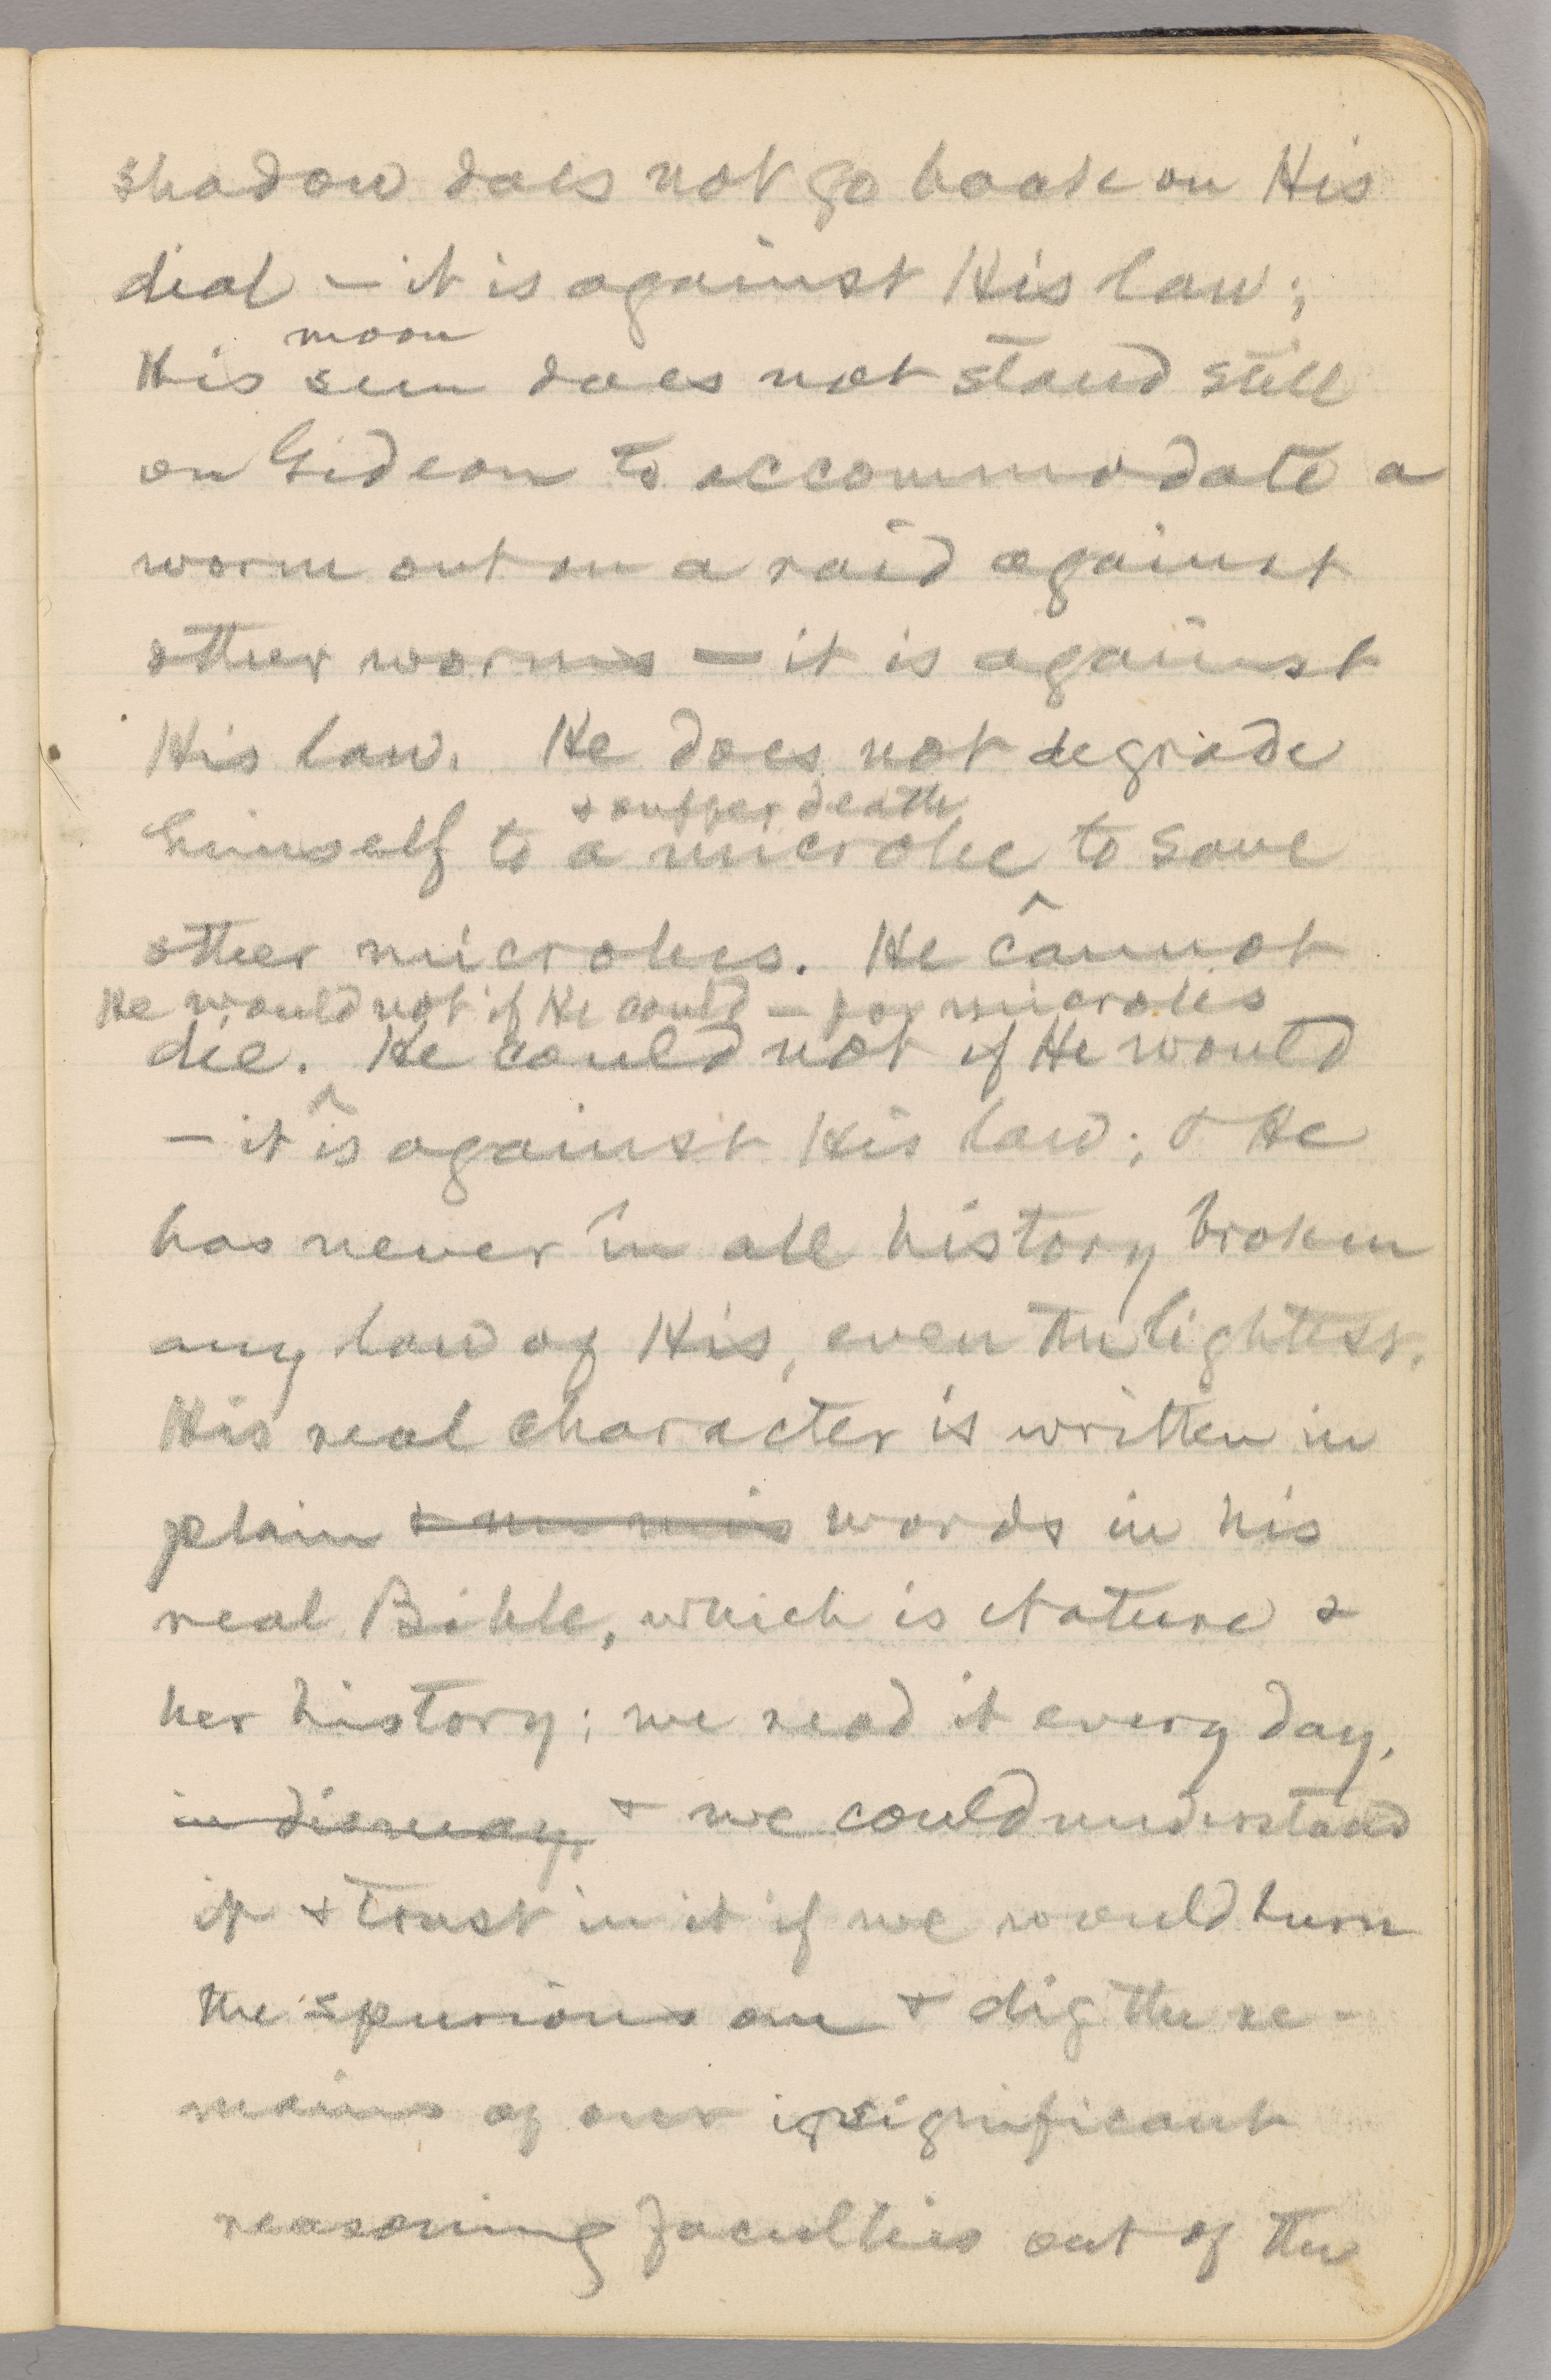 shadow does not go back on His
dial — it is against His law;
moon
His sun does not stand still
on Gideon to accommodate a
worm out on a raid against
other worms — it is against
His law. He does not degrade
& suffer death
himself to a microbe to save
other microbes. He cannot
He would not if He could — for microbes
die. He could not if He would
— it is against His law; & He
has never in all history broken
any law of His, even the lightest.
His real character is written in
plain words in his
real Bible, which is Nature &
her history; we read it every day,
in dismay, & we could understand
it & trust in it if we would burn
the spurious one & dig the re-
mains of our insignificant
reasoning faculties out of the